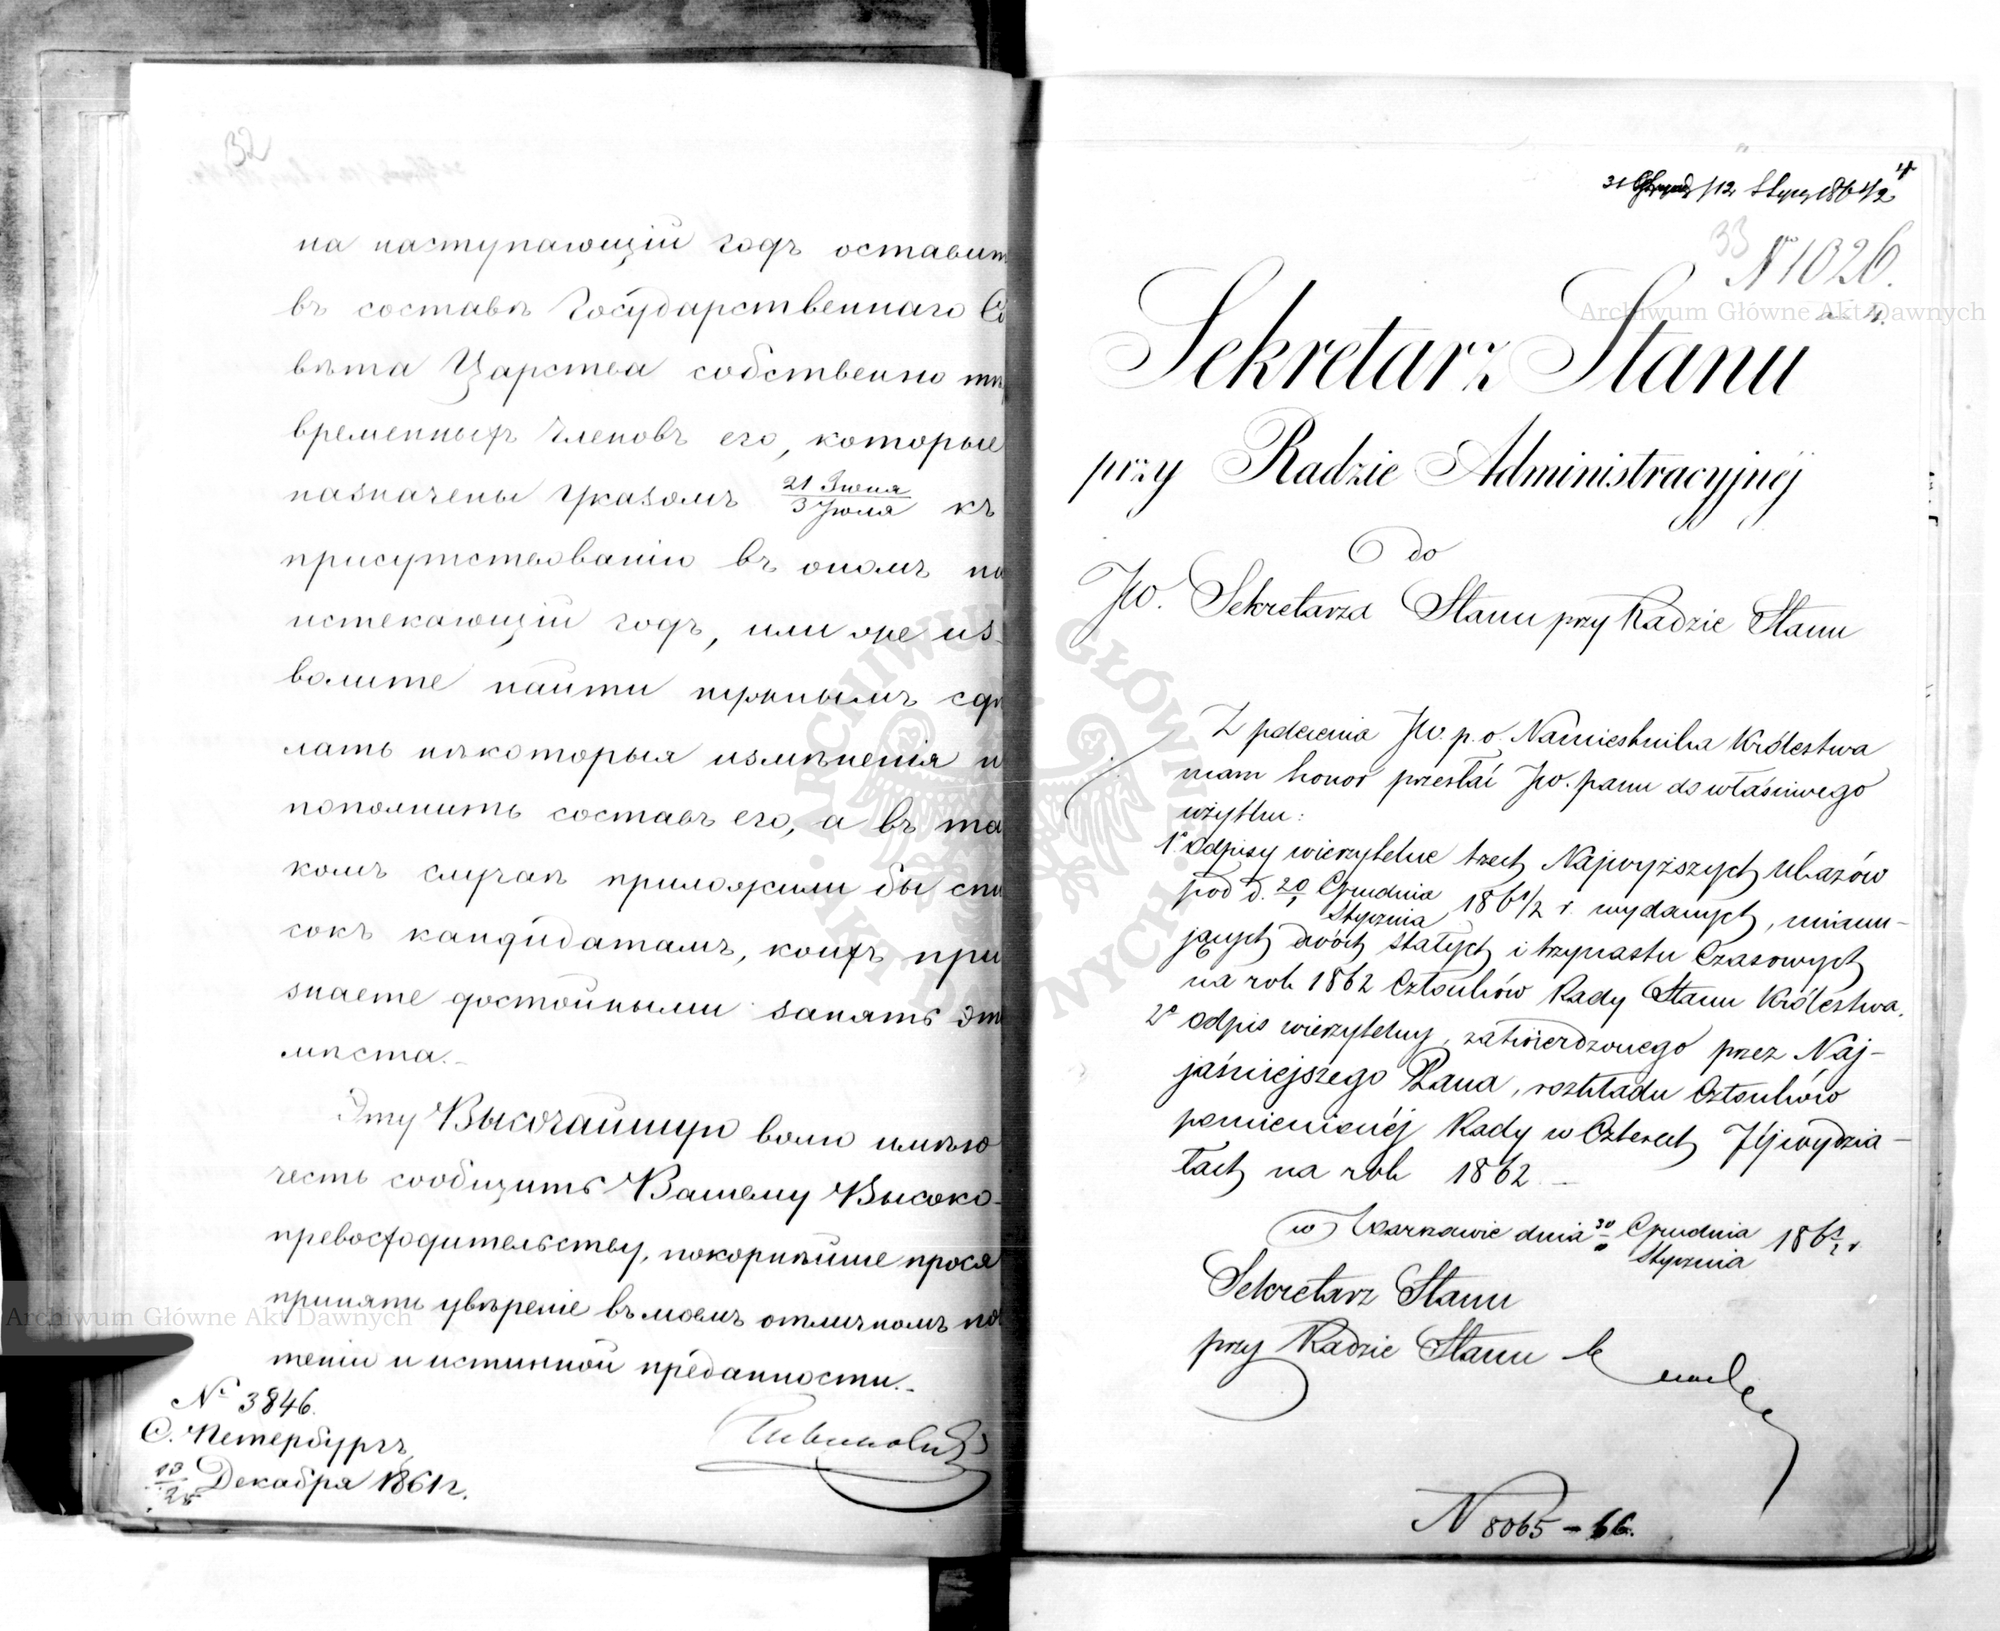 32
на наступающій годъ оставит
въ составѣ Государственнаго Со
вѣта Царства собственно тѣ
временныхъ Членовъ его, которые
назначены Указомъ 21 Іюня / 3 Іюля къ
присутствованію въ ономъ на
истекающій годъ, или же из-
волите найти нужнымъ сдѣ
лать нѣкоторыя измѣненія и
пополнить составъ его, а въ та
комъ случаѣ приложили бы спи
сокъ кандидатамъ, коихъ при
знаете достойными занять эт
мѣста.
Эту Высочайшую волю имѣю
честь сообщить Вашему Высоко-
превосходительству, покорнѣйше прося
принять увѣреніе въ моемъ отличномъ по
теніи и истинной преданности.
№ 3846.
С. Петербургъ,
Декабря 1861 г.
31 /12 Stycz 1861/2
33
№ 1026.
Sekretarz Stanu
przy Radzie Administracyjnéj
do
JW. Sekretarza Stanu przy Radzie Stanu
Z polecenia JW. p. o. Namiestnika Królestwa
mam honor przesłać JW. panu do właściwego
użytku:
1º odpisy wierzytelne trzech Najwyższych ukazów
pod d. 20/1 Grudnia/Stycznia 1861/2 r. wydanych, mianu-
jących dwóch stałych i trzynastu Czasowych
na rok 1862 Członków Rady Stanu Królestwa.
2º odpis wierzytelny, zatwierdzonego przez Naj-
jaśniejszego Pana, rozkładu Członków
pomienionéj Rady w Czterech Jéj wydzia-
łach na rok 1862.
w Warszawie dnia 30 Grudnia/Stycznia 1861/2 r
Sekretarz Stanu
przy Radzie Stanu
N 8065 – 66.
Archiwum Główne Akt Dawnych
Archiwum Główne Akt Dawnych
ARCHIWUM GŁÓWNE AKT DAWNYCH